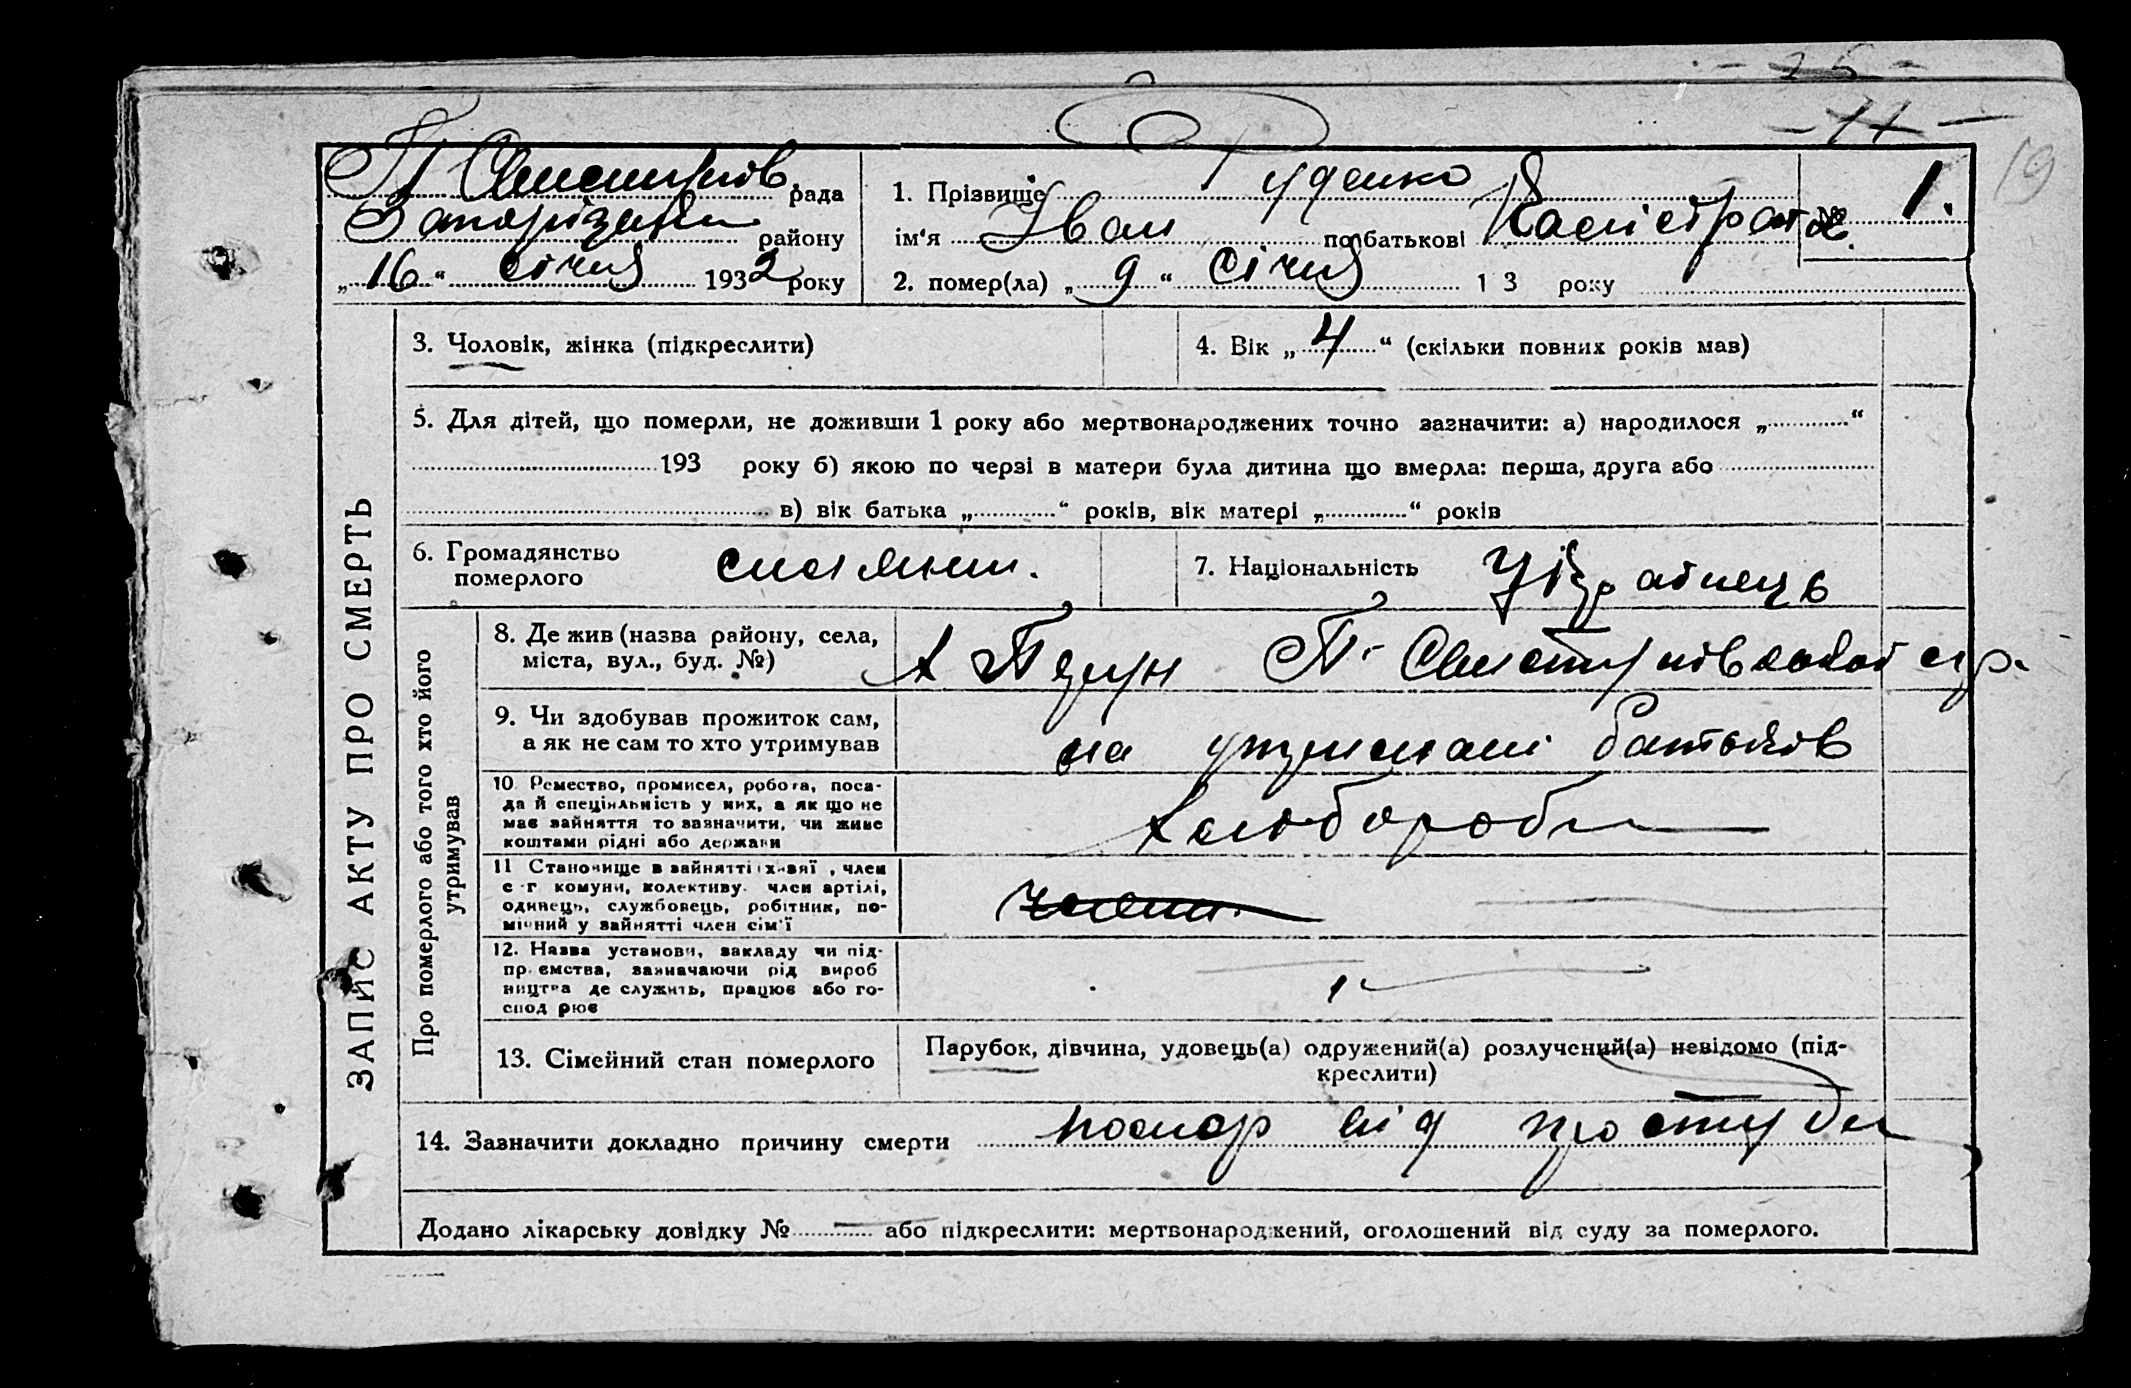 25
11
19
рада
1. Прізвище Руденко
1.
району
ім'я Іван по батькові Калістрат
„16“ січня 1932 року
2. помер(ла) „9“ Січня 1 3 року
3. Чоловік, жінка (підкреслити)
4. Вік „4“ (скільки повних років мав)
5. Для дітей, що померли, не доживши 1 року або мертвонароджених точно зазначити: а) народилося „ “
193 року б) якою по черзі в матери була дитина що вмерла: перша, друга або
в) вік батька „ “ років, вік матері „ “ років
6. Громадянство
померлого
селянин.
7. Національність Українець
ЗАПИС АКТУ ПРО СМЕРТЬ
Про померлого або того хто його
утримував
8. Де жив (назва району, села,
міста, вул., буд. №)
9. Чи здобував прожиток сам,
а як не сам то хто утримував
на утримані батьків
10. Ремество, промисел, робота, поса-
да й спеціяльність у них, а як що не
має зайняття то зазначити, чи живе
коштами рідні або держави
Хлібороби
11 Становище в зайнятті , член
с-г комуни, колективу, член артілі,
одинець, службовець, робітник, по-
мічний у зайнятті член сім'ї
12. Назва установи, закладу чи під-
приємства, зазначаючи рід вироб
ництва де служить, працює або го-
сподарює
13. Сімейний стан померлого
Парубок, дівчина, удовець(а) одружений(а) розлучений(а) невідомо (під-
креслити)
14. Зазначити докладно причину смерти помер від простуди
Додано лікарську довідку № або підкреслити: мертвонароджений, оголошений від суду за померлого.